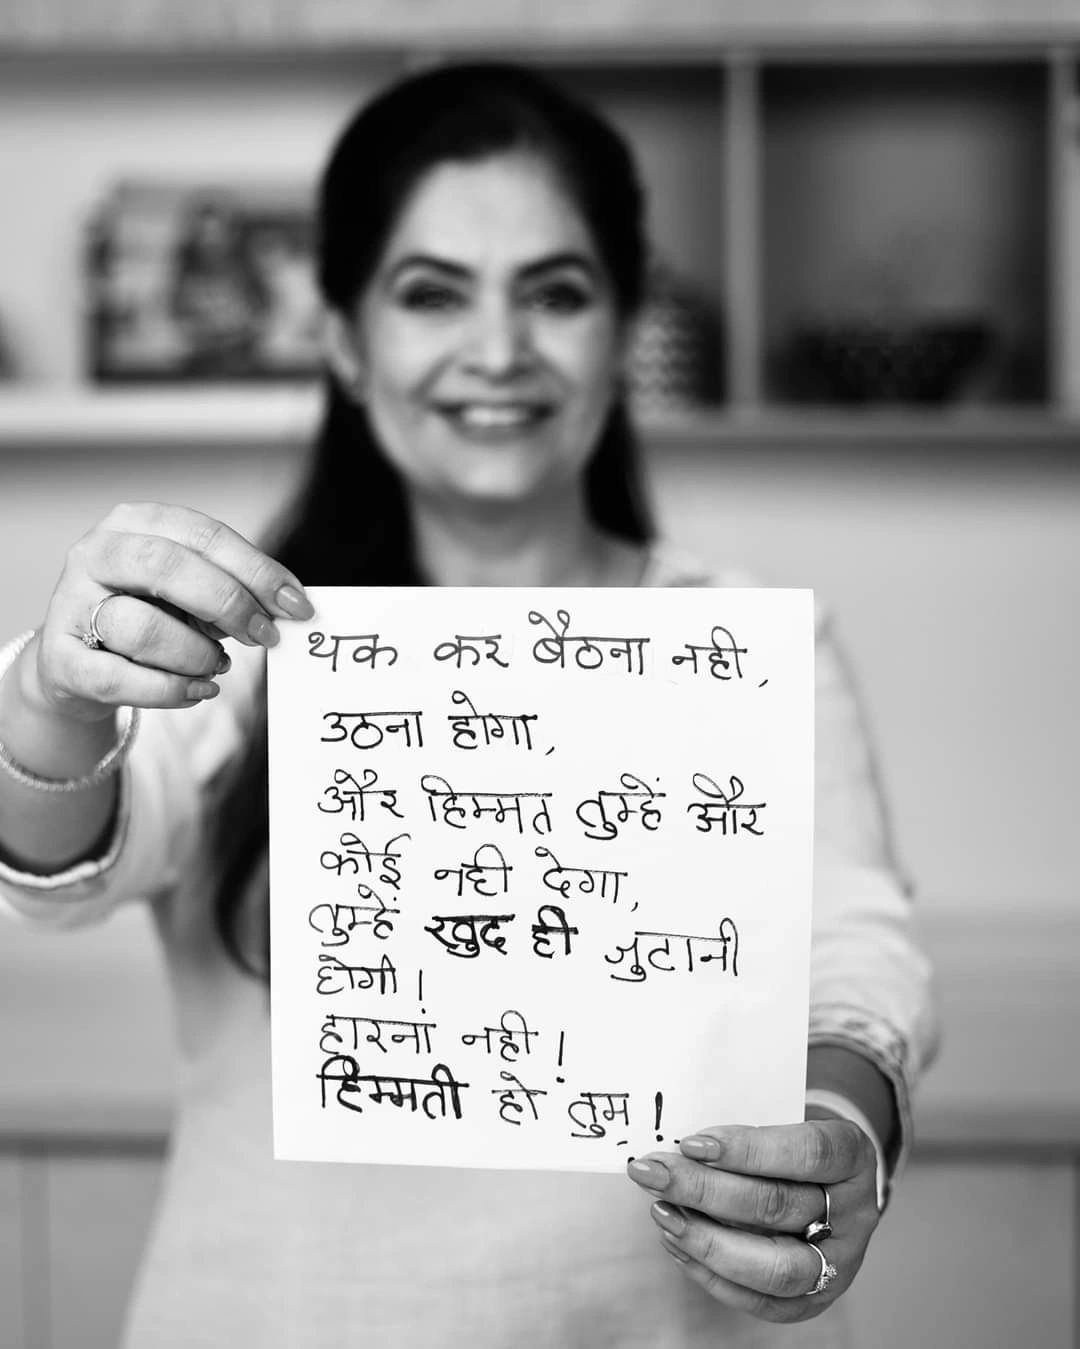 थक कर बैठना नही,
उठना होगा,
और हिम्मत तुम्हें और
कोई नही देगा,
तुम्हें खुद ही जुटानी
होगी।
हारनां नही!
हिम्मती हो तुम!